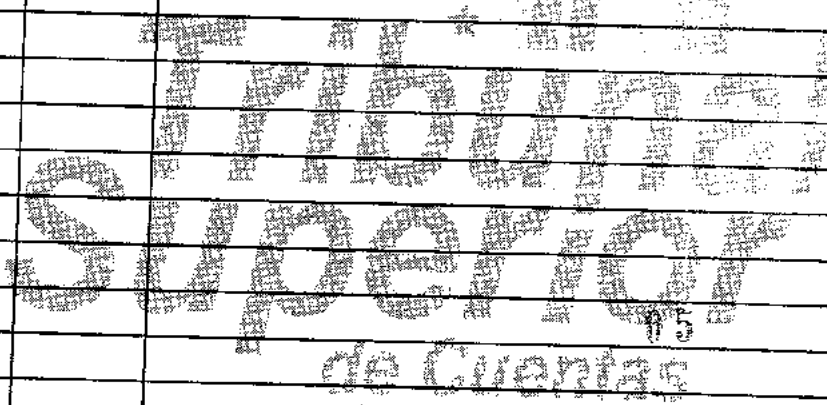 Tribunal
Superior
05
de Cuentas